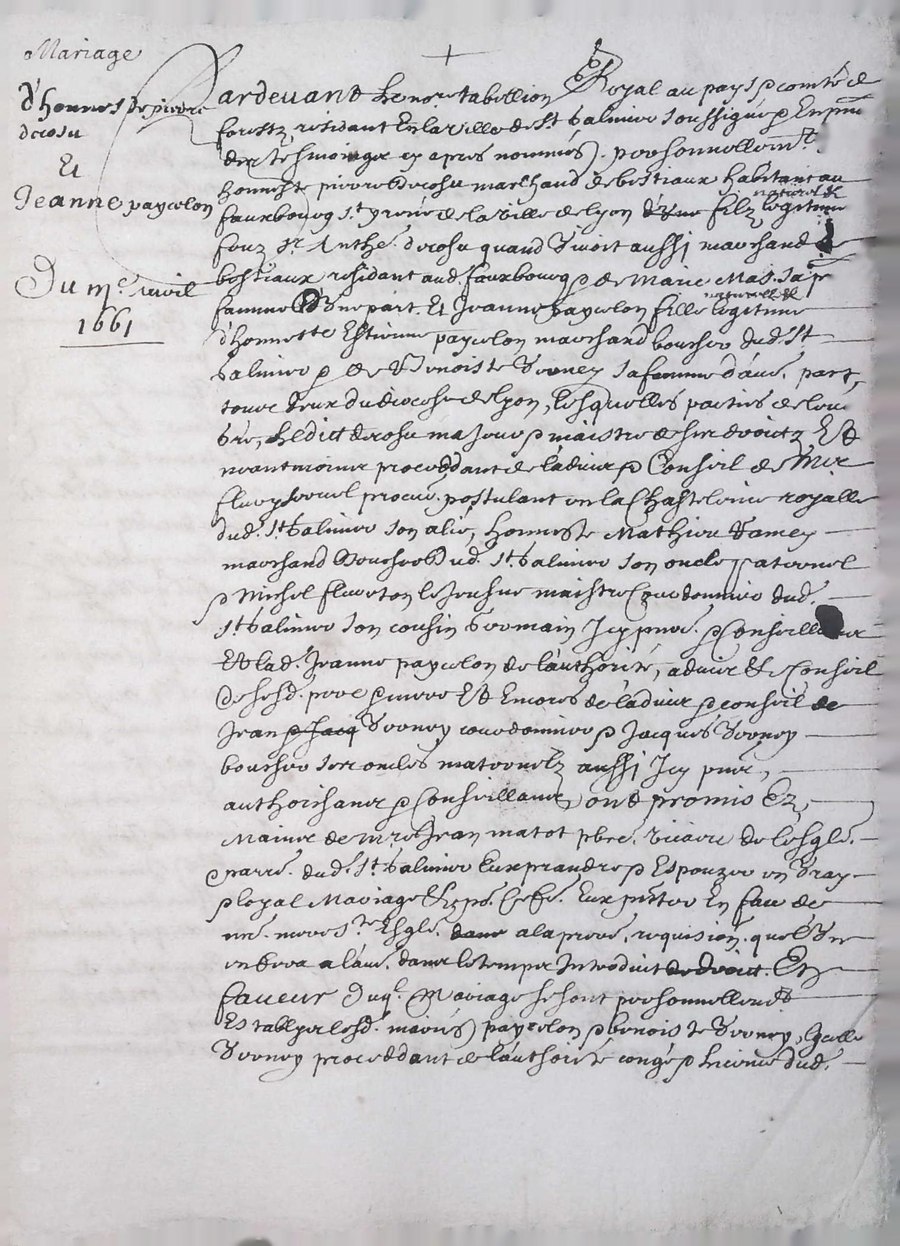 Mariage
d'honneste pierre
decosu
Et
Jeanne paycolon
Du me avril
1661
Pardevant Le nore tabellion Royal au pays & comté de
forestz residant En la ville de St Galmier soussigné & En pnce
des tesmoings cy apres nommés). personnellemt
honneste pierre Decosu marchand de bestiaux habitant au
naturel &
fauxbourg st yrené de la ville de lyon filz legitime
feuz sr Anthe decosu quand vivoit aussi marchand de
bestiaux residant aud. fauxbourg & de Marie Mas sa
naturelle &
femme D'une part. Et Jeanne paycolon fille legitime
d'honneste Estienne paycolon marchand boucher dud. St
Galmier & de Benoiste Verney sa femme d'aue. part,
tous deux du diocese de lyon, lesquelles parties de leur
gre, Ledict decosu majeur & maistre de ses droictz Et
neantmoings proceddant de l'advis & Conseil de Mre
fleury procur. postulant en la Chastelenie royalle
dud. St Galmier son alié, honneste Mathieu Vamey
marchand Boucher Dud. St. Galmier son oncle paternel
& Michel fleureton le jeusne maistre Cordonnier dud.
St Galmier son cousin Germain Icy pnts. & Conseillans
Et lad. Jeanne paycolon de l'authorité, advis & Conseil
de sesd. pere & mere Et Encores de l'advis & conseil de
Jean & Jacq Verney cordonnier & Jacques Verney
boucher ses oncles maternelz aussi Icy pnts,
authorisans & Conseillans, ont promis Ez
Mains de Mre Jean matot pbre. vicaire de l'esglé.
parré. dud. St Galmier Eux prandre & Espouzer en vray
& loyal Mariage & Eux pnter En face de
nre. mere Ste Esglé. dans a la preme. requision. que l'un
en fera a l'aue. dans le temps Introduit de droict. Et En
faveur Duql. Mariage se sont personnellemt
Establys lesd. mariés) paycolon & benoiste Verney, lquelle
Verney proceddant de l'authorité congé & licence dud.